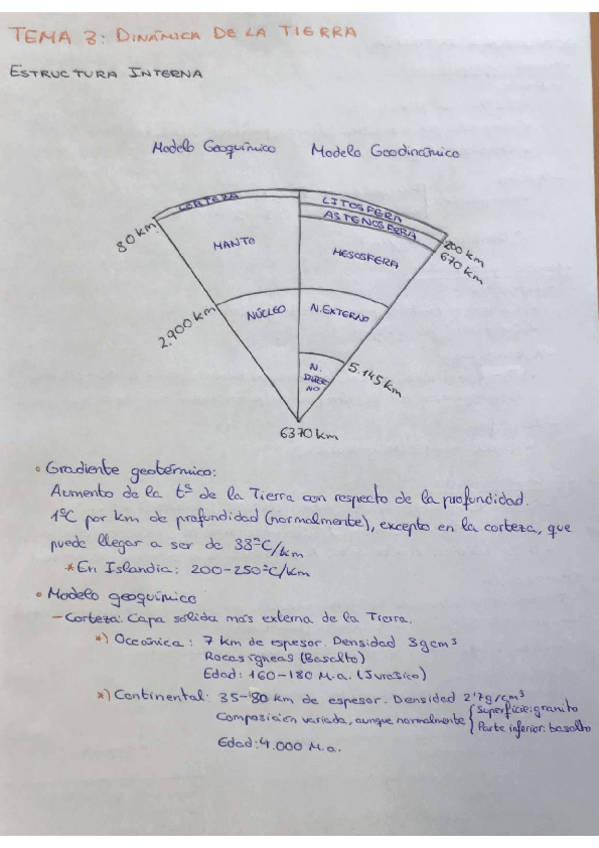 TEMA 3: DINÁMICA DE LA TIERRA
ESTRUCTURA INTERNA
Modelo Geoquímico Modelo Geodinámico
CORTEZA
LITOSFERA
ASTENOSFERA
80 km
200 km
670 km
MANTO
MESOSFERA
NÚCLEO
N.EXTERNO
2.900 km
N.
INTER
NO
5.145 km
6370 km
• Gradiente geotérmico:
Aumento de la tª de la Tierra con respecto de la profundidad.
1ºC por km de profundidad (normalmente), excepto en la corteza, que
puede llegar a ser de 33ºC/km
*En Islandia: 200-250ºC/km
• Modelo geoquímico
- Corteza: Capa sólida más externa de la Tierra.
*) Oceánica: 7 km de espesor. Densidad 3gcm³
Rocas ígneas (Basalto)
Edad: 160-180 M.a. (Jurásico)
*) Continental: 35-80 km de espesor. Densidad 2'7g/cm³
Composición variada, aunque normalmente { Superficie: granito
Parte inferior: basalto
Edad: 4.000 M.a.